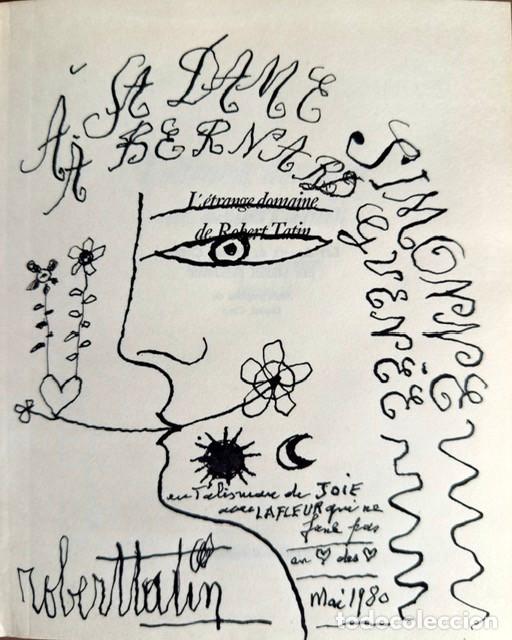 À SA DAME SIMONNE
À BERNARD GUENÉE
L'étrange domaine
de Robert Tatin
en Talisman de JOIE
avec LAFLEUR qui ne
fane pas
en ♡ des ♡
Mai 1980
roberttatin
todocoleccion